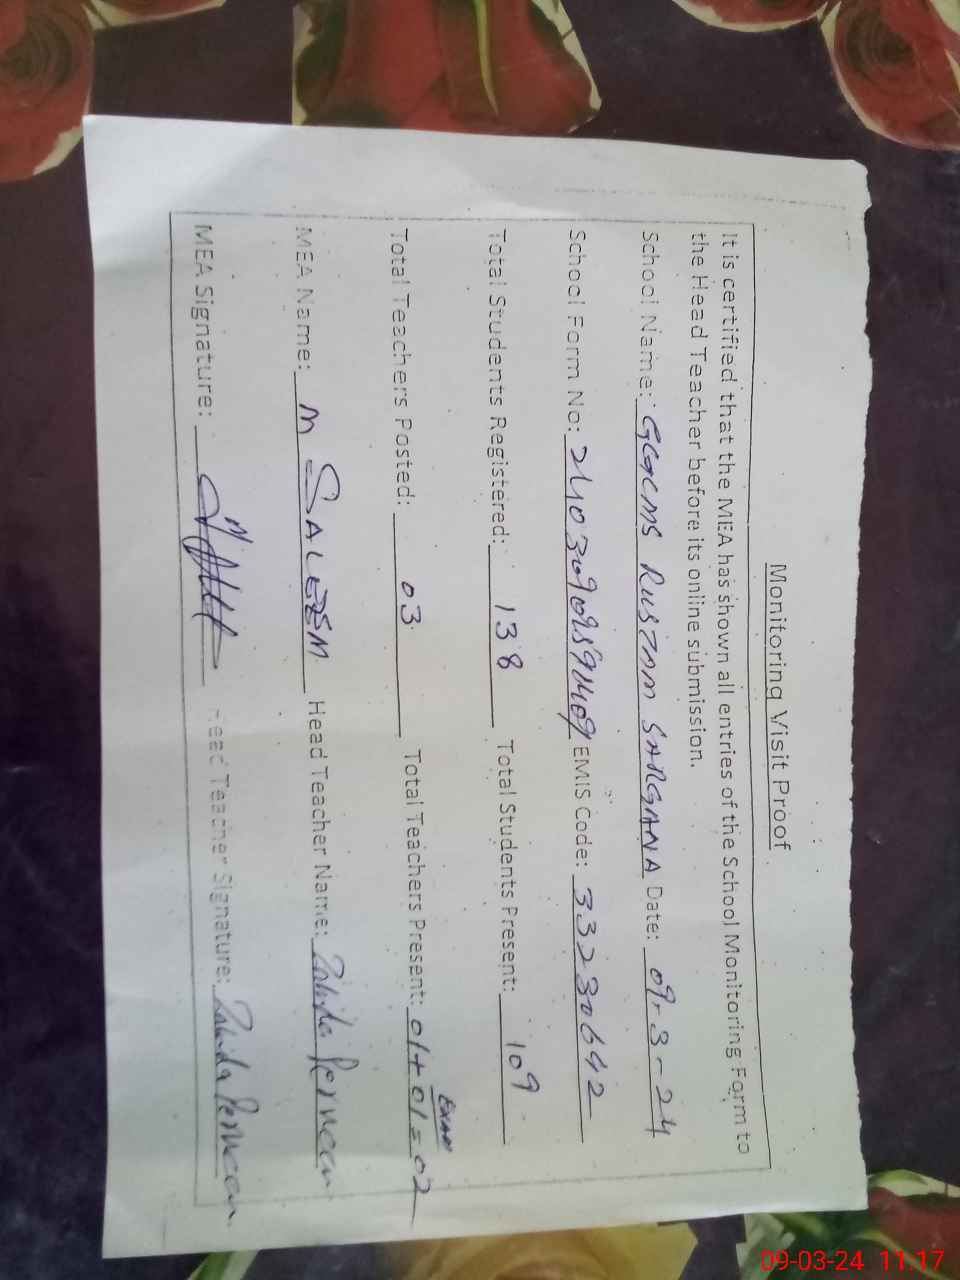 Monitoring Visit Proof
It is certified that the MEA has shown all entries of the School Monitoring Form to
the Head Teacher before its online submission.
School Name: GGCMS RUSTAM SARGANA Date: 09-3-24
School Form No: EMIS Code: 33230642
Total Students Registered: 138 Total Students Present: 109
Exam
Total Teachers Posted: 03 Total Teachers Present: 01+01=02
MEA Name: M SALEEM Head Teacher Name: Perveen
MEA Signature: Head Teacher Signature: Perveen
09-03-24 11:17